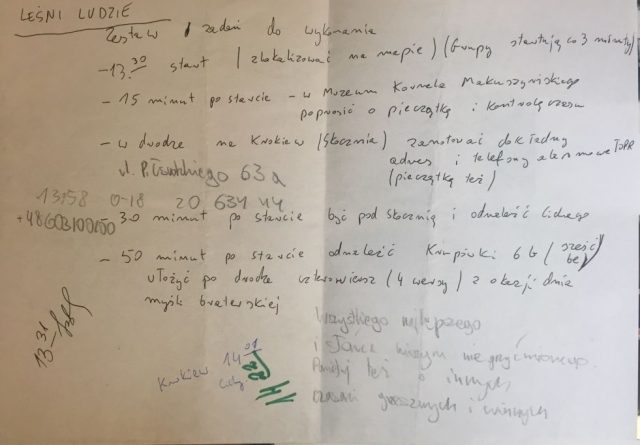 LEŚNI LUDZIE
Zestaw zadań do wykonania
- 13:30 start (zlokalizować na mapie) (Grupy startują co 3 minuty)
- 15 minut po starcie - w Muzeum Kornela Makuszyńskiego
poprosić o pieczątkę i kontrolę czasu
- w drodze na Krokiew (Skocznia) zanotować dokładny
adres i telefony alarmowe TOPR
(pieczątkę też)
ul. Piłsudskiego 63a
13:58 0-18 20 634 44
+48603100100
30 minut po starcie być pod skocznią i odnaleźć Cichego
- 50 minut po starcie odnaleźć Krupówki 6b (sześć be)
ułożyć po drodze czterowiersz (4 wersy) z okazji dnia
myśli braterskiej
13 31
Wszystkiego najlepszego
i słońca
Pamiętaj też o innych,
Krokiew 14 01
Cichy
14 22